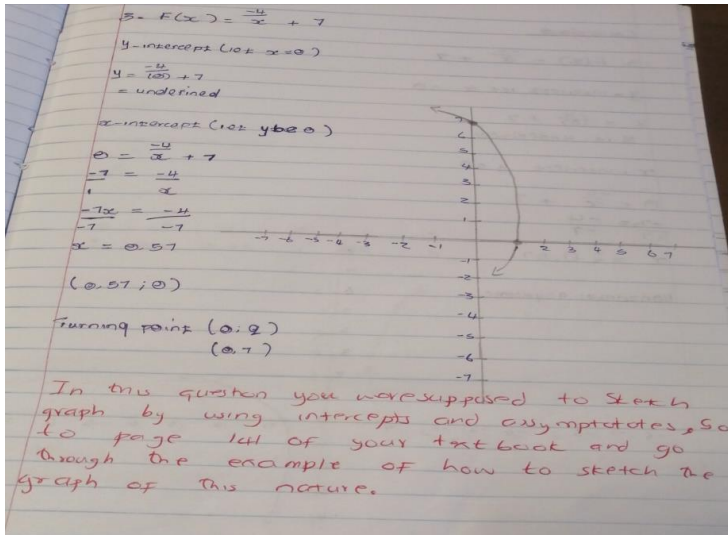 3. F(x) = -4/x + 7
y-intercept (let x=0)
y = -4/(0) + 7
= undefined
x-intercept (let y be 0)
0 = -4/x + 7
-7/1 = -4/x
-7x/-7 = -4/-7
x = 0.57
(0.57 ; 0)
Turning point (0; q)
(0, 7)
7
6
5
4
3
2
1
-7 -6 -5 -4 -3 -2 -1 1 2 3 4 5 6 7
-1
-2
-3
-4
-5
-6
-7
In this question you were supposed to sketch
graph by using intercepts and assymptotes, So
to page 141 of your text book and go
through the example of how to sketch the
graph of this nature.